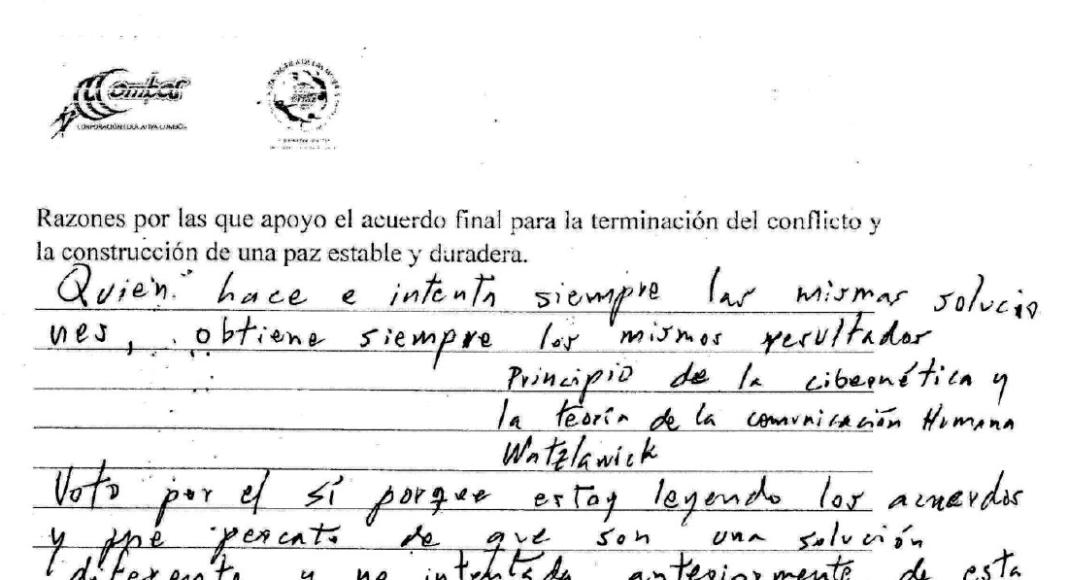 Combos
CORPORACIÓN EDUCATIVA COMBOS
Razones por las que apoyo el acuerdo final para la terminación del conflicto y
la construcción de una paz estable y duradera.
Quien hace e intenta siempre las mismas solucio
nes, obtiene siempre los mismos resultados
Principio de la cibernética y
la teoría de la comunicación Humana
Watzlawick
Voto por el sí porque estoy leyendo los acuerdos
y me percato de que son una solución
diferente y no intentada anteriormente de esta